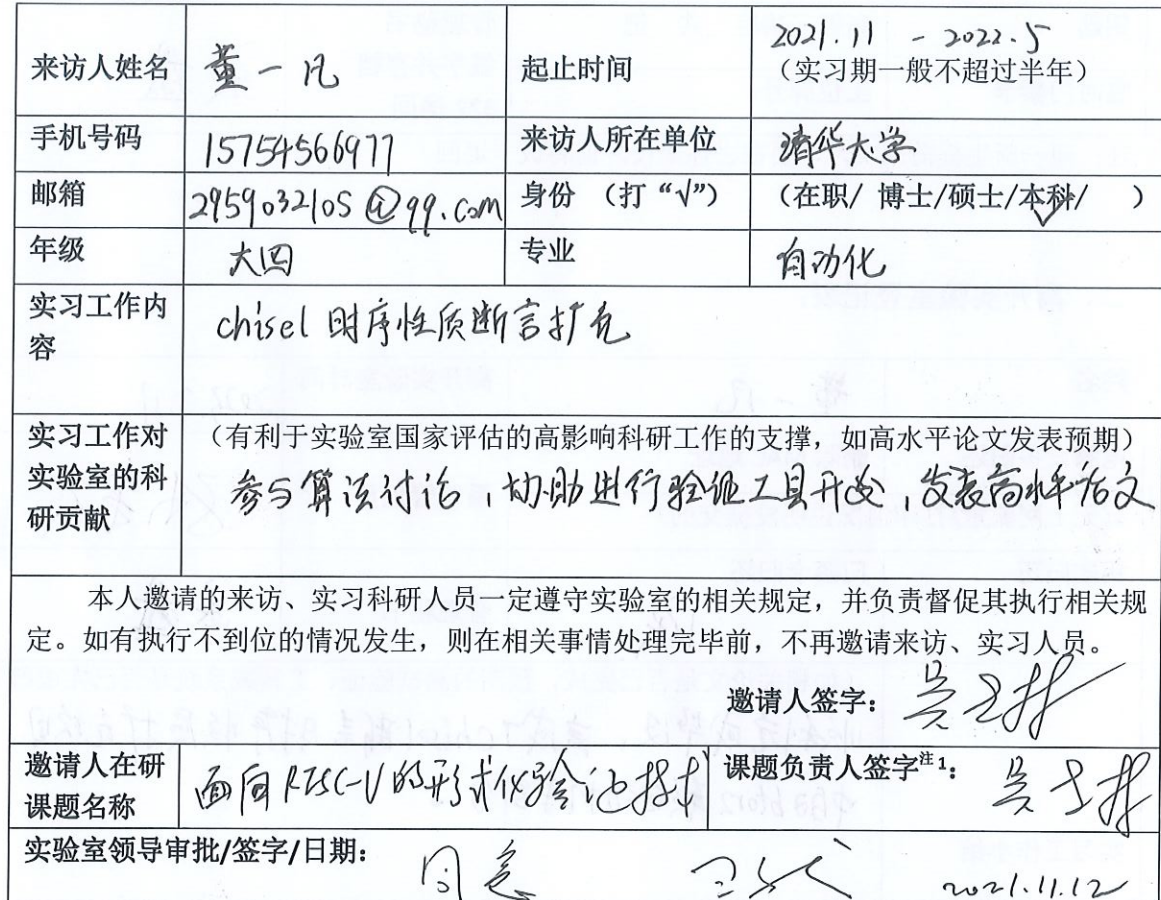 来访人姓名 董一凡 起止时间 2021.11 - 2022.5
（实习期一般不超过半年）
手机号码 15754566977 来访人所在单位 清华大学
邮箱 2959032105@qq.com 身份 （打“√”） （在职/ 博士/硕士/本科/ ） √
年级 大四 专业 自动化
实习工作内容 chisel 时序性质断言扩充
实习工作对实验室的科研贡献 （有利于实验室国家评估的高影响科研工作的支撑，如高水平论文发表预期）
参与算法讨论，协助进行验证工具开发，发表高水平论文
本人邀请的来访、实习科研人员一定遵守实验室的相关规定，并负责督促其执行相关规
定。如有执行不到位的情况发生，则在相关事情处理完毕前，不再邀请来访、实习人员。
邀请人签字：
邀请人在研课题名称 面向RISC-V的形式化验证技术 课题负责人签字注1：
实验室领导审批/签字/日期： 同意 2021.11.12